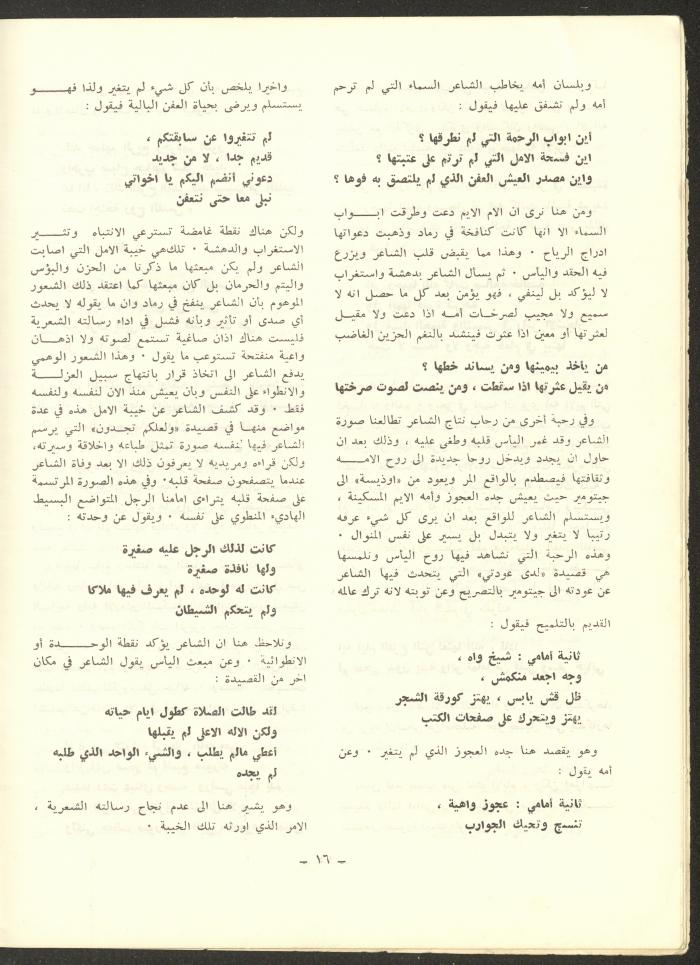 وبلسان أمه يخاطب الشاعر السماء التي لم ترحم
أمه ولم تشفق عليها فيقول :
أين ابواب الرحمة التي لم نطرقها ؟
اين فسحة الامل التي لم ترتم على عتبتها ؟
واين مصدر العيش العفن الذي لم يلتصق به فوها ؟
ومن هنا نرى ان الام الايم دعت وطرقت ابـــواب
السماء الا انها كانت كنافخة في رماد وذهبت دعواتها
ادراج الرياح . وهذا مما يقبض قلب الشاعر ويزرع
فيه الحقد والياس . ثم يسال الشاعر بدهشة واستغراب
لا ليؤكد بل لينفي ، فهو يؤمن بعد كل ما حصل انه لا
سميع ولا مجيب لصرخات أمـه اذا دعت ولا مقيـل
لعثرتها أو معين اذا عثرت فينشد بالنغم الحزين الغاضب
من يأخذ بيمينها ومن يساند خطها ؟
من يقيل عثرتها اذا سقطت ، ومن ينصت لصوت صرختها
وفي رحبة أخرى من رحاب نتاج الشاعر تطالعنا صورة
الشاعر وقد غمر الياس قلبه وطغى عليه ، وذلك بعد ان
حاول ان يجدد ويدخل روحا جديدة الى روح الامـــه
وثقافتها فيصطدم بالواقع المر ويعود من «اوذيسة» الى
جيتومير حيث يعيش جده العجوز وأمه الايم المسكينة ،
ويستسلم الشاعر للواقع بعد ان يرى كل شيء عرفه
رتيبا لا يتغير ولا يتبدل بل يسير على نفس المنوال .
وهذه الرحبة التي نشاهد فيها روح الياس ونلمسها
هي قصيدة «لدى عودتي» التي يتحدث فيها الشاعر
عن عودته الى جيتومير بالتصريح وعن توبته لانه ترك عالمه
القديم بالتلميح فيقول :
ثانية أمامي : شيخ واه ،
وجه اجعد منكمش ،
ظل قش يابس ، يهتز كورقة الشجر
يهتز ويتحرك على صفحات الكتب
وهو يقصد هنا جده العجوز الذي لم يتغير . وعن
أمه يقول :
ثانية أمامي : عجوز واهية ،
تنسج وتحيك الجوارب
واخيرا يلخص بأن كل شيء لم يتغير ولذا فهــــو
يستسلم ويرضى بحياة العفن البالية فيقول :
لم تتغيروا عن سابقتكم ،
قديم جدا ، لا من جديد
دعوني أنضم اليكم يا اخواتي
نبلى معا حتى نتعفن
ولكن هناك نقطة غامضة تسترعي الانتباه وتثـــير
الاستغراب والدهشة . تلك هي خيبة الامل التي اصابت
الشاعر ولم يكن مبعثها ما ذكرنا من الحزن والبؤس
واليتم والحرمان بل كان مبعثها كما اعتقد ذلك الشعور
الموهوم بأن الشاعر ينفخ في رماد وان ما يقوله لا يحدث
أي صدى أو تأثير وبأنه فشل في اداء رسالته الشعرية
فليست هناك اذان صاغية تستمع لصوته ولا اذهــان
واعية منفتحة تستوعب ما يقول . وهذا الشعور الوهمي
يدفع الشاعر الى اتخاذ قرار بانتهاج سبيل العزلـــة
والانطواء على النفس وبان يعيش منذ الان لنفسه ولنفسه
فقط . وقد كشف الشاعر عن خيبة الامل هذه في عدة
مواضع منهـا في قصيدة «ولعلكم تجـدون» التي يرسم
الشاعر فيها لنفسه صورة تمثل طباعه واخلاقة وسيرته،
ولكن قراءه ومريديه لا يعرفون ذلك الا بعد وفاة الشاعر
عندما يتصفحون صفحة قلبه . وفي هذه الصورة المرتسمة
على صفحة قلبه يتراءى امامنا الرجل المتواضع البسيط
الهاديء المنطوي على نفسه . ويقول عن وحدته :
كانت لذلك الرجل علية صغيرة
ولها نافذة صغيرة
كانت له لوحده ، لم يعرف فيها ملاكا
ولم يتحكم الشيطان
ونلاحظ هنا ان الشاعر يؤكد نقطة الوحـــدة أو
الانطوائية . وعن مبعث الياس يقول الشاعر في مكان
اخر من القصيدة :
لقد طالت الصلاة كطول ايام حياته
ولكن الاله الاعلى لم يقبلها
أعطي مالم يطلب ، والشيء الواحد الذي طلبه
لم يجده
وهو يشير هنا الى عدم نجاح رسالته الشعرية ،
الامر الذي اورثه تلك الخيبة .
– ١٦ –